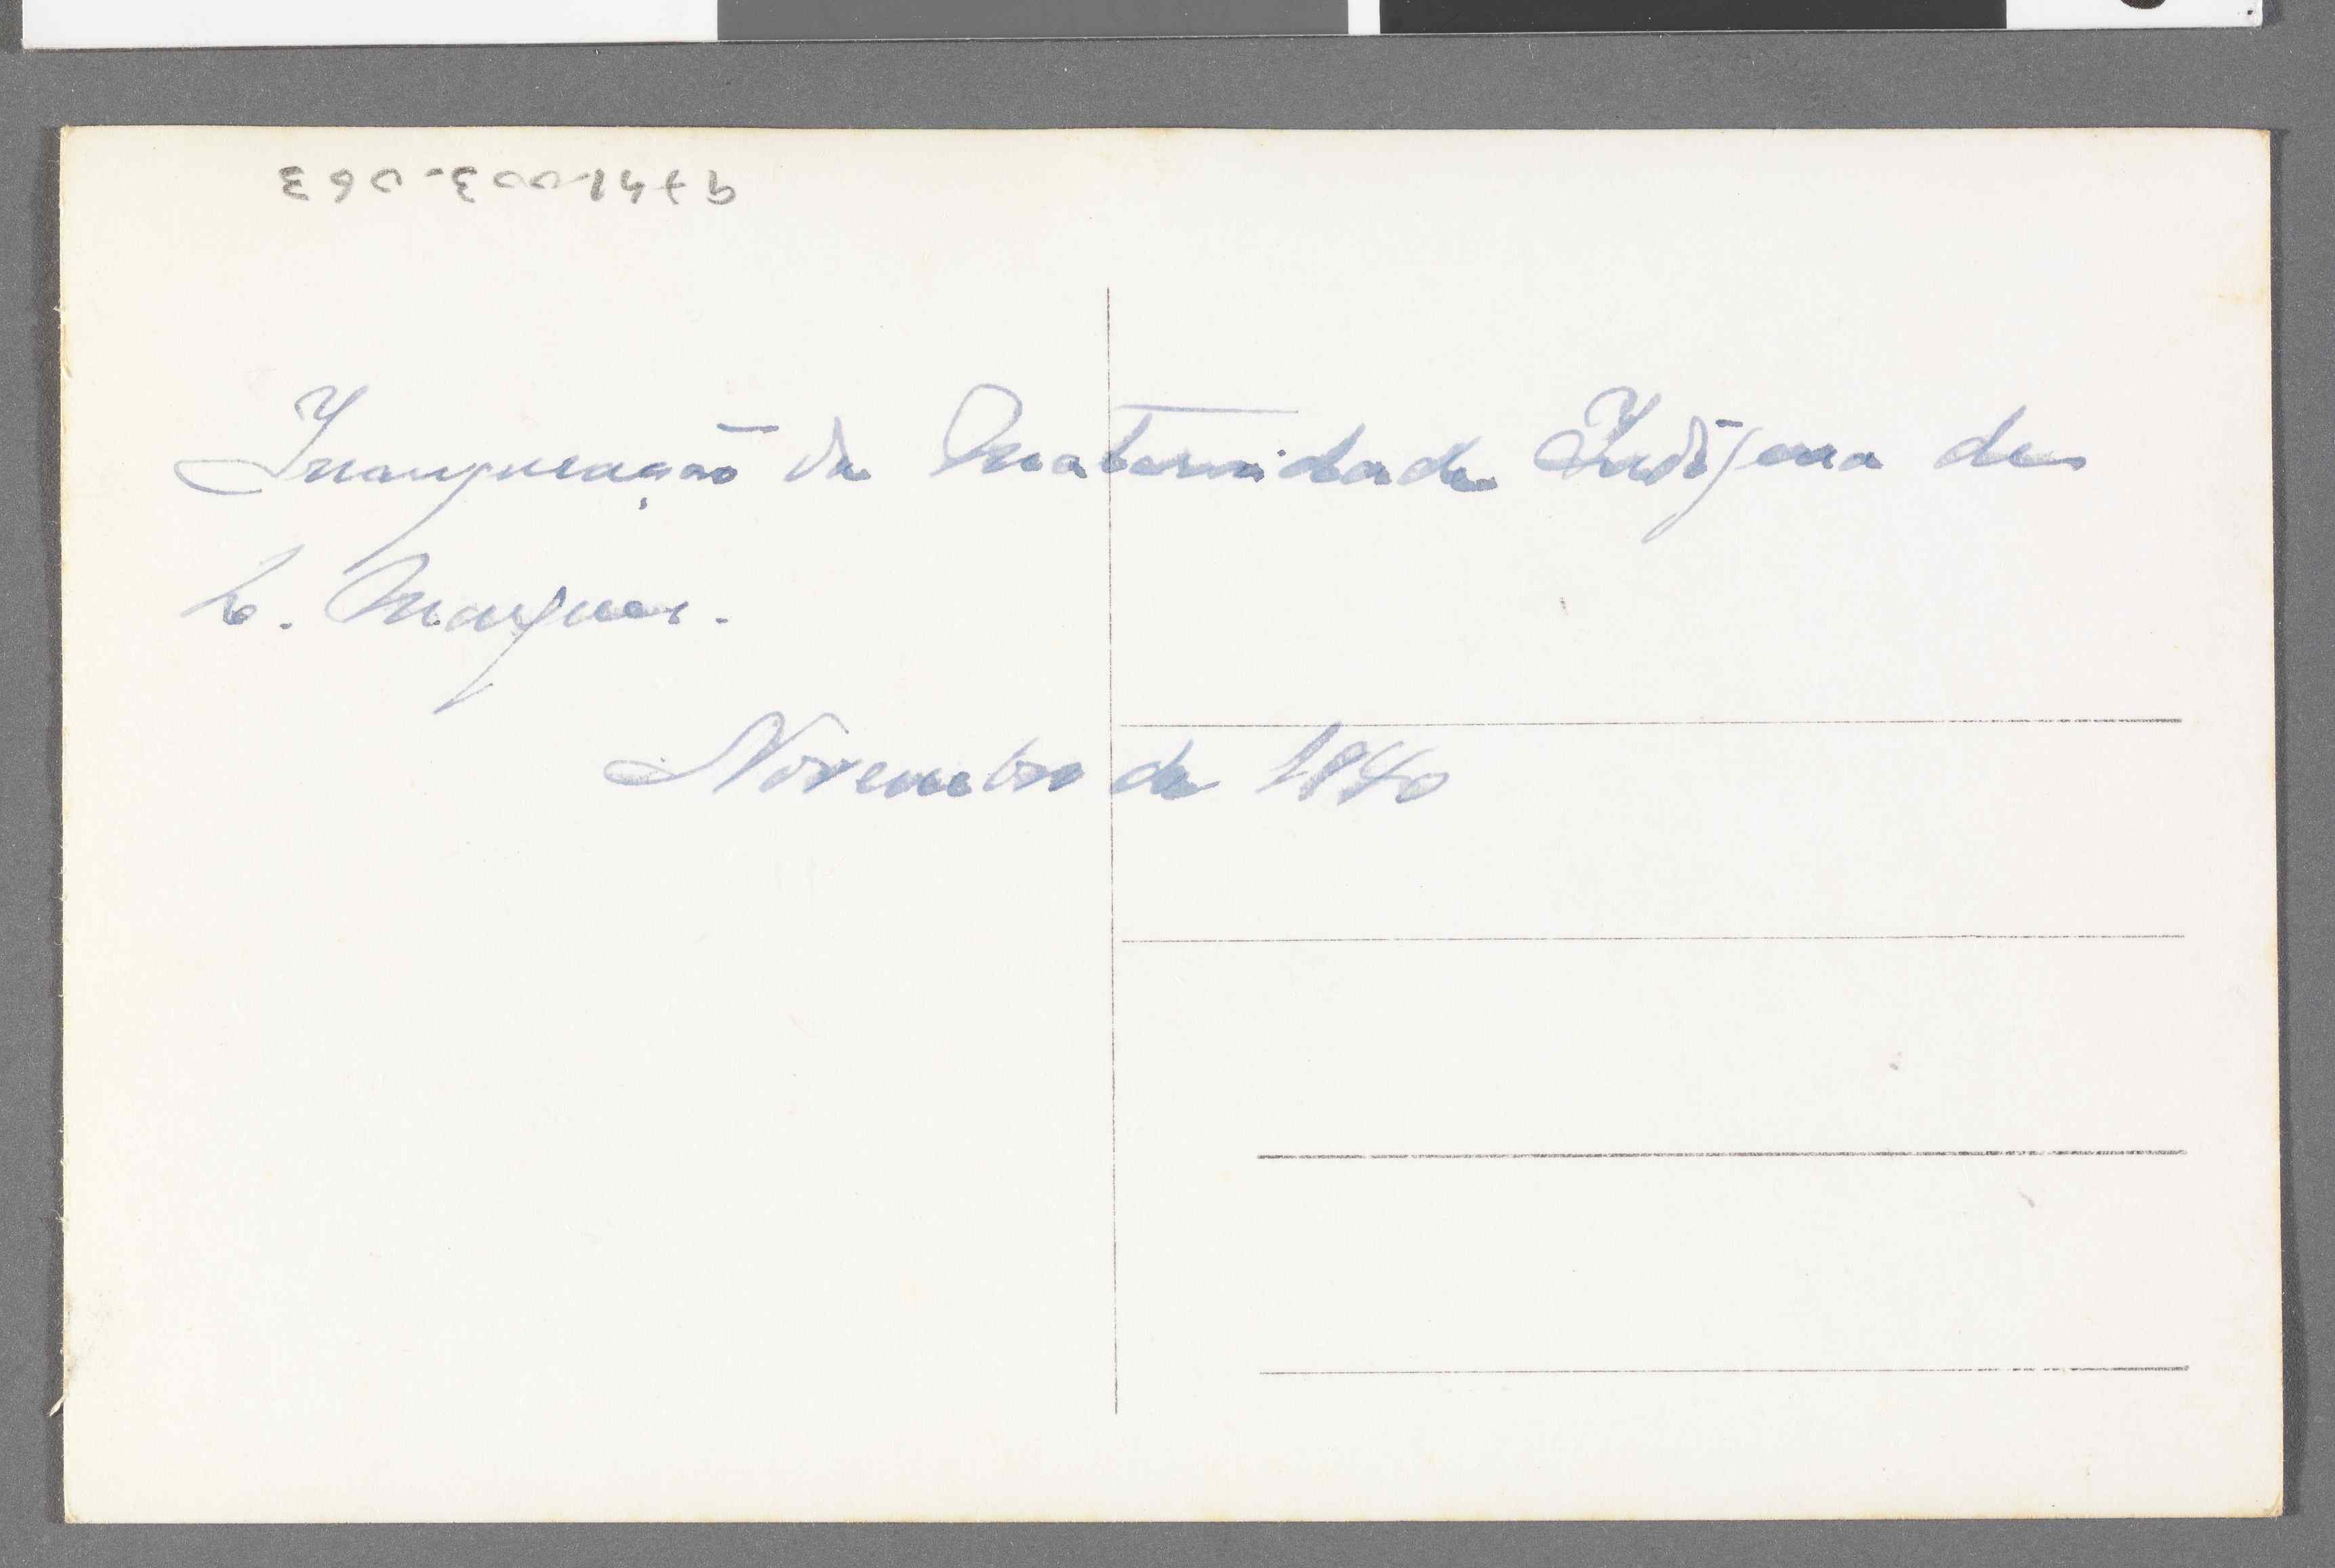 9741-003-063
Inauguração da Maternidade Indígena de
L. Marques.
Novembro de 1940